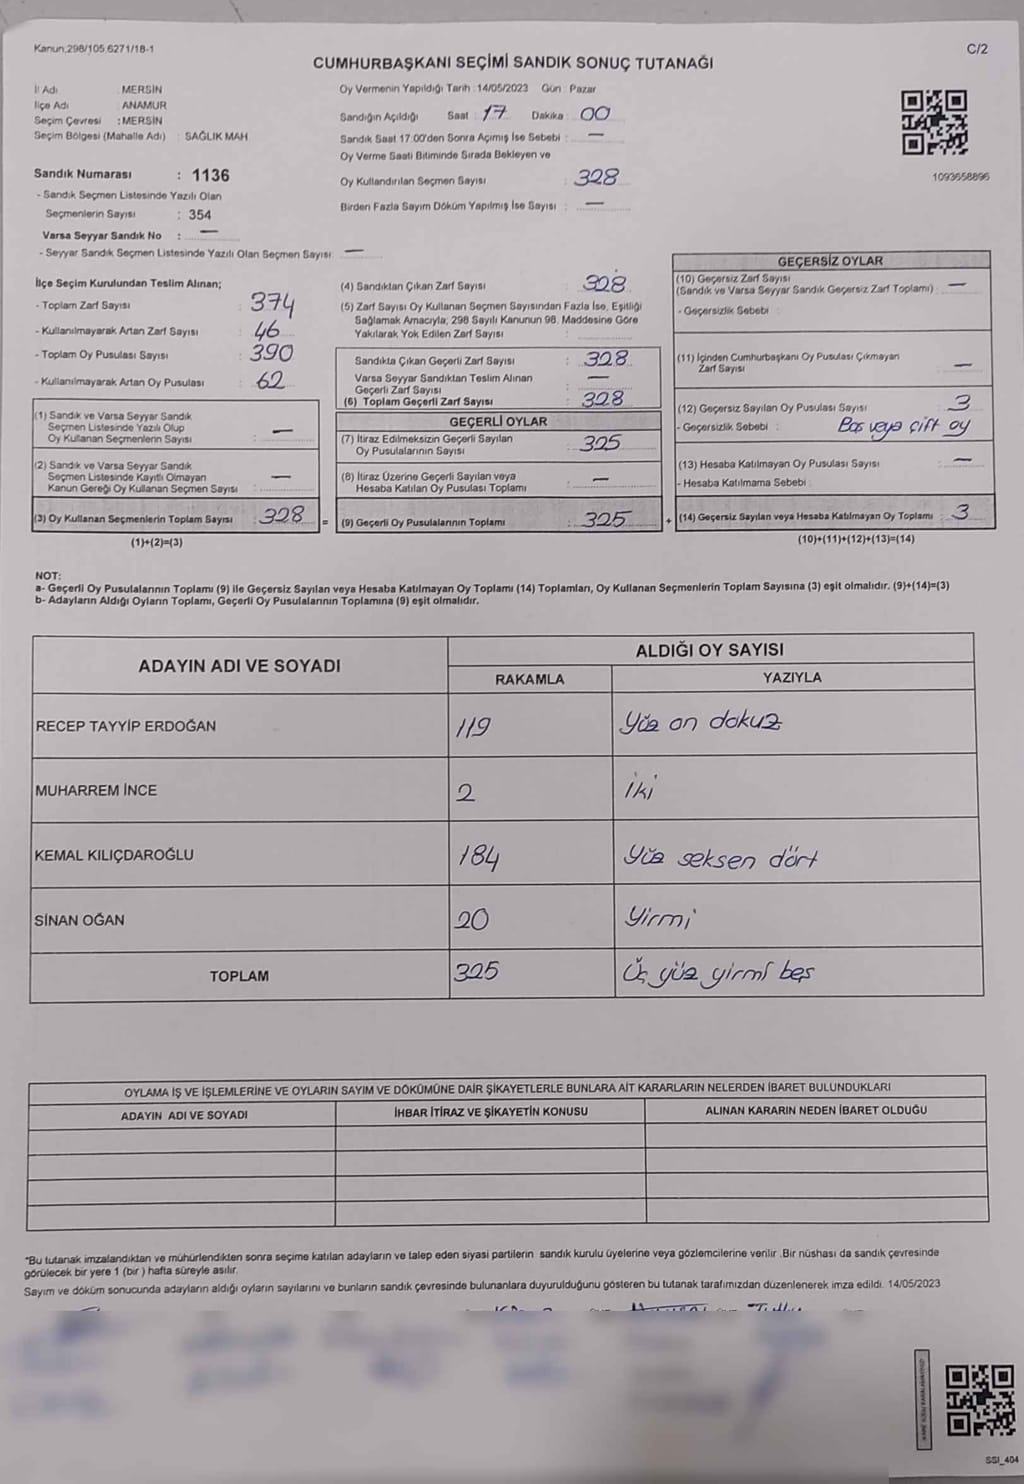 Kanun,298/105,6271/18-1
C/2
CUMHURBAŞKANI SEÇİMİ SANDIK SONUÇ TUTANAĞI
İl Adı : MERSİN
İlçe Adı : ANAMUR
Seçim Çevresi : MERSİN
Seçim Bölgesi (Mahalle Adı) : SAĞLIK MAH.
Sandık Numarası : 1136
- Sandık Seçmen Listesinde Yazılı Olan
Seçmenlerin Sayısı : 354
Varsa Seyyar Sandık No : —
- Seyyar Sandık Seçmen Listesinde Yazılı Olan Seçmen Sayısı: —
Oy Vermenin Yapıldığı Tarih :14/05/2023 Gün : Pazar
Sandığın Açıldığı Saat : 17 Dakika : 00
Sandık Saat 17.00'den Sonra Açımış İse Sebebi : —
Oy Verme Saati Bitiminde Sırada Bekleyen ve
Oy Kullandırılan Seçmen Sayısı : 328
Birden Fazla Sayım Döküm Yapılmış İse Sayısı : —
1093658896
İlçe Seçim Kurulundan Teslim Alınan;
- Toplam Zarf Sayısı : 374
- Kullanılmayarak Artan Zarf Sayısı : 46
- Toplam Oy Pusulası Sayısı : 390
- Kullanılmayarak Artan Oy Pusulası : 62
(1) Sandık ve Varsa Seyyar Sandık
Seçmen Listesinde Yazılı Olup
Oy Kullanan Seçmenlerin Sayısı : —
(2) Sandık ve Varsa Seyyar Sandık
Seçmen Listesinde Kayıtlı Olmayan
Kanun Gereği Oy Kullanan Seçmen Sayısı : —
(3) Oy Kullanan Seçmenlerin Toplam Sayısı : 328 =
(1)+(2)=(3)
(4) Sandıktan Çıkan Zarf Sayısı : 328
(5) Zarf Sayısı Oy Kullanan Seçmen Sayısından Fazla İse, Eşitliği
Sağlamak Amacıyla; 298 Sayılı Kanunun 98. Maddesine Göre
Yakılarak Yok Edilen Zarf Sayısı :
Sandıkta Çıkan Geçerli Zarf Sayısı : 328
Varsa Seyyar Sandıktan Teslim Alınan
Geçerli Zarf Sayısı : —
(6) Toplam Geçerli Zarf Sayısı : 328
GEÇERLİ OYLAR
(7) İtiraz Edilmeksizin Geçerli Sayılan
Oy Pusulalarının Sayısı : 325
(8) İtiraz Üzerine Geçerli Sayılan veya
Hesaba Katılan Oy Pusulası Toplamı : —
(9) Geçerli Oy Pusulalarının Toplamı : 325 +
GEÇERSİZ OYLAR
(10) Geçersiz Zarf Sayısı
(Sandık ve Varsa Seyyar Sandık Geçersiz Zarf Toplamı) : —
- Geçersizlik Sebebi :
(11) İçinden Cumhurbaşkanı Oy Pusulası Çıkmayan
Zarf Sayısı : —
(12) Geçersiz Sayılan Oy Pusulası Sayısı : 3
- Geçersizlik Sebebi : Boş veya çift oy
(13) Hesaba Katılmayan Oy Pusulası Sayısı : —
- Hesaba Katılmama Sebebi :
(14) Geçersiz Sayılan veya Hesaba Katılmayan Oy Toplamı : 3
(10)+(11)+(12)+(13)=(14)
NOT:
a- Geçerli Oy Pusulalarının Toplamı (9) ile Geçersiz Sayılan veya Hesaba Katılmayan Oy Toplamı (14) Toplamları, Oy Kullanan Seçmenlerin Toplam Sayısına (3) eşit olmalıdır. (9)+(14)=(3)
b- Adayların Aldığı Oyların Toplamı, Geçerli Oy Pusulalarının Toplamına (9) eşit olmalıdır.
ADAYIN ADI VE SOYADI
ALDIĞI OY SAYISI
RAKAMLA YAZIYLA
RECEP TAYYİP ERDOĞAN 119 Yüz on dokuz
MUHARREM İNCE 2 İki
KEMAL KILIÇDAROĞLU 184 Yüz seksen dört
SİNAN OĞAN 20 Yirmi
TOPLAM 325 Üç yüz yirmi beş
OYLAMA İŞ VE İŞLEMLERİNE VE OYLARIN SAYIM VE DÖKÜMÜNE DAİR ŞİKAYETLERLE BUNLARA AİT KARARLARIN NELERDEN İBARET BULUNDUKLARI
ADAYIN ADI VE SOYADI İHBAR İTİRAZ VE ŞİKAYETİN KONUSU ALINAN KARARIN NEDEN İBARET OLDUĞU
*Bu tutanak imzalandıktan ve mühürlendikten sonra seçime katılan adayların ve talep eden siyasi partilerin sandık kurulu üyelerine veya gözlemcilerine verilir .Bir nüshası da sandık çevresinde
görülecek bir yere 1 (bir ) hafta süreyle asılır.
Sayım ve döküm sonucunda adayların aldığı oyların sayılarını ve bunların sandık çevresinde bulunanlara duyurulduğunu gösteren bu tutanak tarafımızdan düzenlenerek imza edildi. 14/05/2023
SSI_404